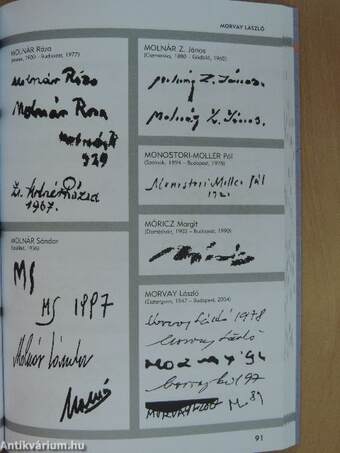 MORVAY LÁSZLÓ
MOLNÁR Róza
1900 - Budapest, 1977)
Molnár Róza
Molnár Rosa
Molnár R
929
1967.
MOLNÁR Sándor
1936)
MS
MS 1997
Molnár Sándor
MOLNÁR Z. János
1880 - Gödöllő, 1960)
Molnár Z. János.
Molnár Z. János.
MONOSTORI-MOLLER Pál
(Szolnok, 1894 - Budapest, 1978)
Monostori Moller Pál
MÓRICZ Margit
1902 - Budapest, 1990)
MORVAY László
(Esztergom, 1947 - Budapest, 2004)
Morvay László 1978
Morvay László
MORVAY 94
97
MORVAY M 89
91
Antikvárium.hu